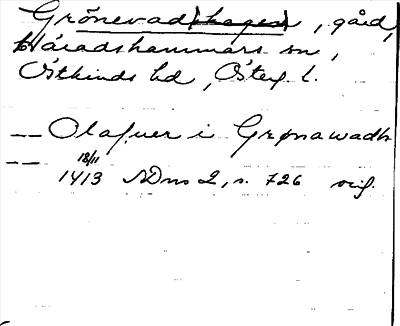 Grönevad (hagen), gård,
Häradshammars sn,
Östkinds hd, Östergl. l.
— Olafuer i Grønawadh
— 18/11 1413 SDns 2, s. 726 orig.